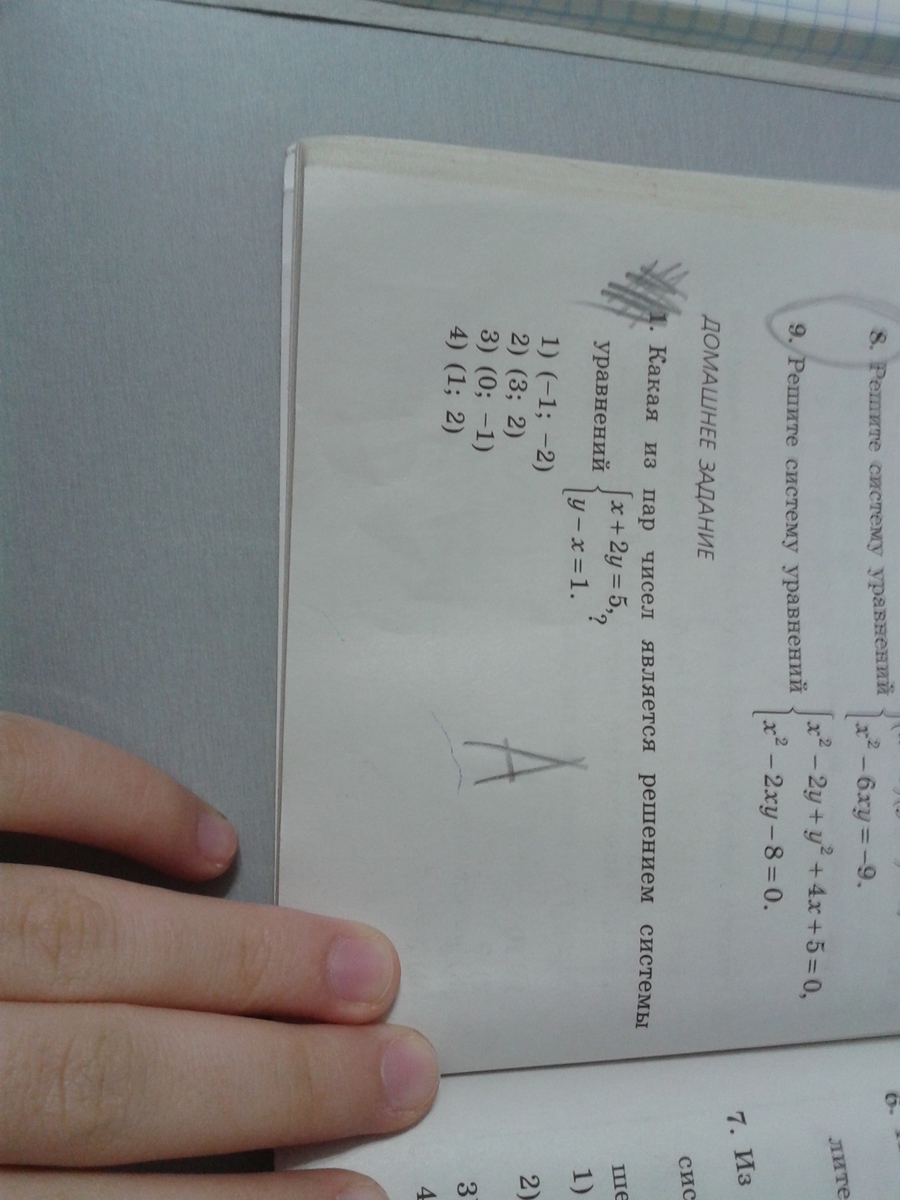 8. Решите систему уравнений { x² − 6xy = −9.
9. Решите систему уравнений { x² − 2y + y² + 4x + 5 = 0,
x² − 2xy − 8 = 0.
ДОМАШНЕЕ ЗАДАНИЕ
1. Какая из пар чисел является решением системы
уравнений { x + 2y = 5,
y − x = 1. ?
1) (−1; −2)
2) (3; 2)
3) (0; −1)
4) (1; 2)
А
6.
7. Из
1)
2)
3)
4